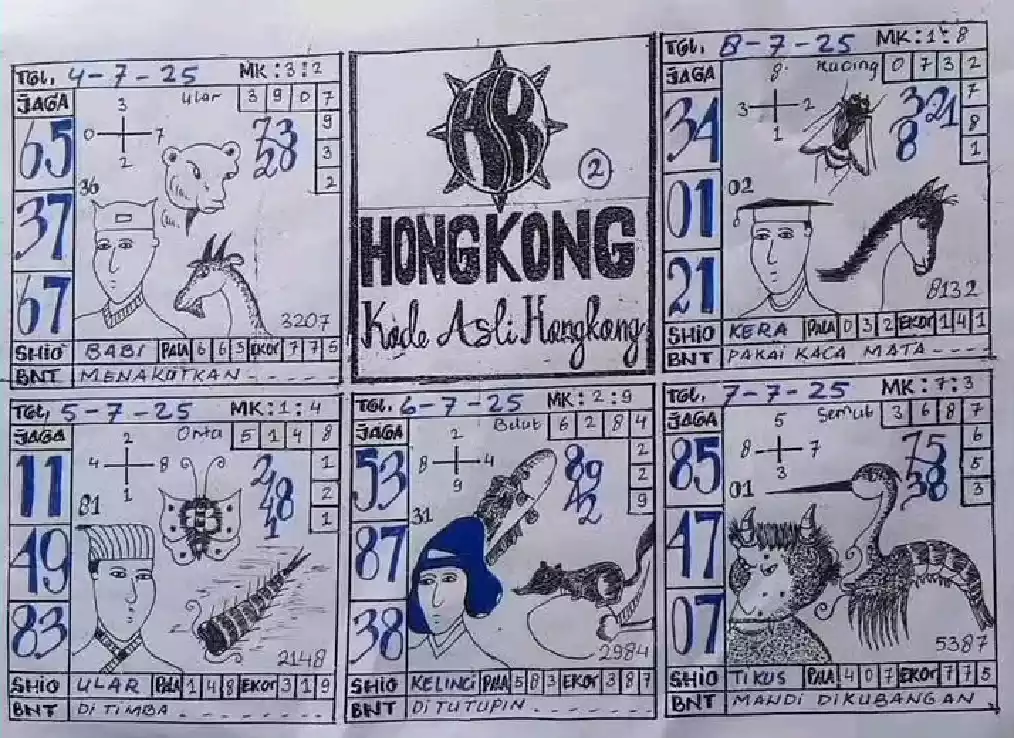 TGL. 4-7-25 MK:3:2
JAGA
3
Ular 3 9 0 7
9
3
2
0 7
2
73
28
65
36
37
67
3207
SHIO BABI PALA 6 6 3 EKOR 7 7 5
BNT MENAKUTKAN - - - - -
HK
2
HONGKONG
Kode Asli Hongkong
TGL. 8-7-25 MK:1:8
JAGA
8
Kucing 0 7 3 2
7
8
1
3 2
1
321
8
34
02
01
21
8132
SHIO KERA PALA 0 3 2 EKOR 1 4 1
BNT PAKAI KACA MATA - - -
TGL. 5-7-25 MK:1:4
JAGA
2
Onta 5 1 4 8
1
2
1
4 8
1
2
48
1
11
81
49
83
2148
SHIO ULAR PALA 1 4 8 EKOR 3 1 9
BNT DI TIMBA - - - - - -
TGL. 6-7-25 MK:2:9
JAGA
2
Belut 6 2 8 4
2
2
9
8 4
9
89
42
53
31
87
38
2984
SHIO KELINCI PALA 5 8 3 EKOR 3 8 7
BNT DITUTUPIN - - - - - -
TGL. 7-7-25 MK:7:3
JAGA
5
Semut 3 6 8 7
6
5
3
8 7
3
75
38
85
01
47
07
5387
SHIO TIKUS PALA 4 0 7 EKOR 7 7 5
BNT MANDI DIKUBANGAN